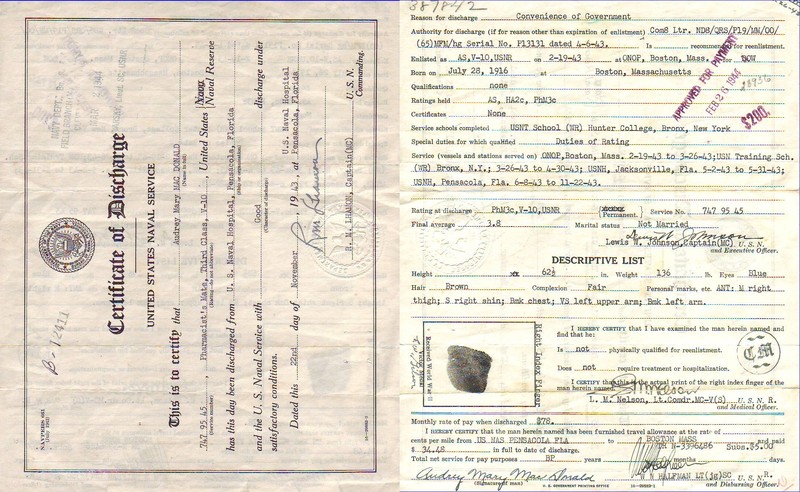 Certificate of Discharge
UNITED STATES NAVAL SERVICE
This is to certify that Audrey Mary MAC DONALD
(Name in full)
747 95 45, Pharmacist's Mate, Third Class, V-10, United States Naval Reserve
(Service number) (Rating—do not abbreviate)
has this day been discharged from U. S. Naval Hospital, Pensacola, Florida
(Ship or organization)
and the U. S. Naval Service with Good discharge under
(Character of discharge)
satisfactory conditions.
Dated this 22nd day of November, 1943, at U.S. Naval Hospital
Pensacola, Florida
R. N. LHAMON, Captain(MC) U. S. N.
Commanding.
B-12411
NAVPERS 661
387842
Reason for discharge Convenience of Government
Authority for discharge (if for reason other than expiration of enlistment) Com8 Ltr. ND8/QRS/P19/MW/00/
(65)MFM/hg Serial No. P13131 dated 4-6-43. Is recommended for reenlistment.
Enlisted as AS,V-10,USNR on 2-19-43 at ONOP, Boston, Mass. for DOW
Born on July 28, 1916 at Boston, Massachusetts
Qualifications none
Ratings held AS, HA2c, PhM3c
Certificates None
APPROVED FOR PAYMENT
FEB 26 1944
$200.
Service schools completed USNT School (WR) Hunter College, Bronx, New York
Special duties for which qualified Duties of Rating
Service (vessels and stations served on) ONOP,Boston, Mass. 2-19-43 to 3-26-43;USN Training Sch.
(WR) Bronx, N.Y.; 3-26-43 to 4-30-43; USNH, Jacksonville, Fla. 5-2-43 to 5-31-43;
USNH, Pensacola, Fla. 6-8-43 to 11-22-43.
Rating at discharge PhM3c,V-10,USNR (Permanent.) Service No. 747 95 45
Final average 3.8 Marital status Not Married
Lewis W. Johnson,Captain(MC) U. S. N.
and Executive Officer.
DESCRIPTIVE LIST
Height 62½ in. Weight 136 lb. Eyes Blue
Hair Brown Complexion Fair Personal marks, etc. ANT: M right
thigh; S right shin; Bmk chest; VS left upper arm; Bmk left arm.
Right Index Finger
I HEREBY CERTIFY that I have examined the man herein named and
find that he:
Is not physically qualified for reenlistment.
Does not require treatment or hospitalization.
CM
I CERTIFY that this is the actual print of the right index finger of the
man herein named.
L. M. Nelson, Lt.Comdr.MC-V(S) U. S. N. R.
and Medical Officer.
Received World War II
Monthly rate of pay when discharged $78.
I HEREBY CERTIFY that the man herein named has been furnished travel allowance at the rate of
cents per mile from US NAS PENSACOLA FLA to BOSTON MASS and paid
$ 34.48 in full to date of discharge. TR N-3396486 Subs.$5.00
Total net service for pay purposes BP years months days.
Audrey Mary Mac Donald
(Signature of man)
W W HALFMAN LT(jg)SC U. S. N. R.
and Disbursing Officer.
U. S. GOVERNMENT PRINTING OFFICE